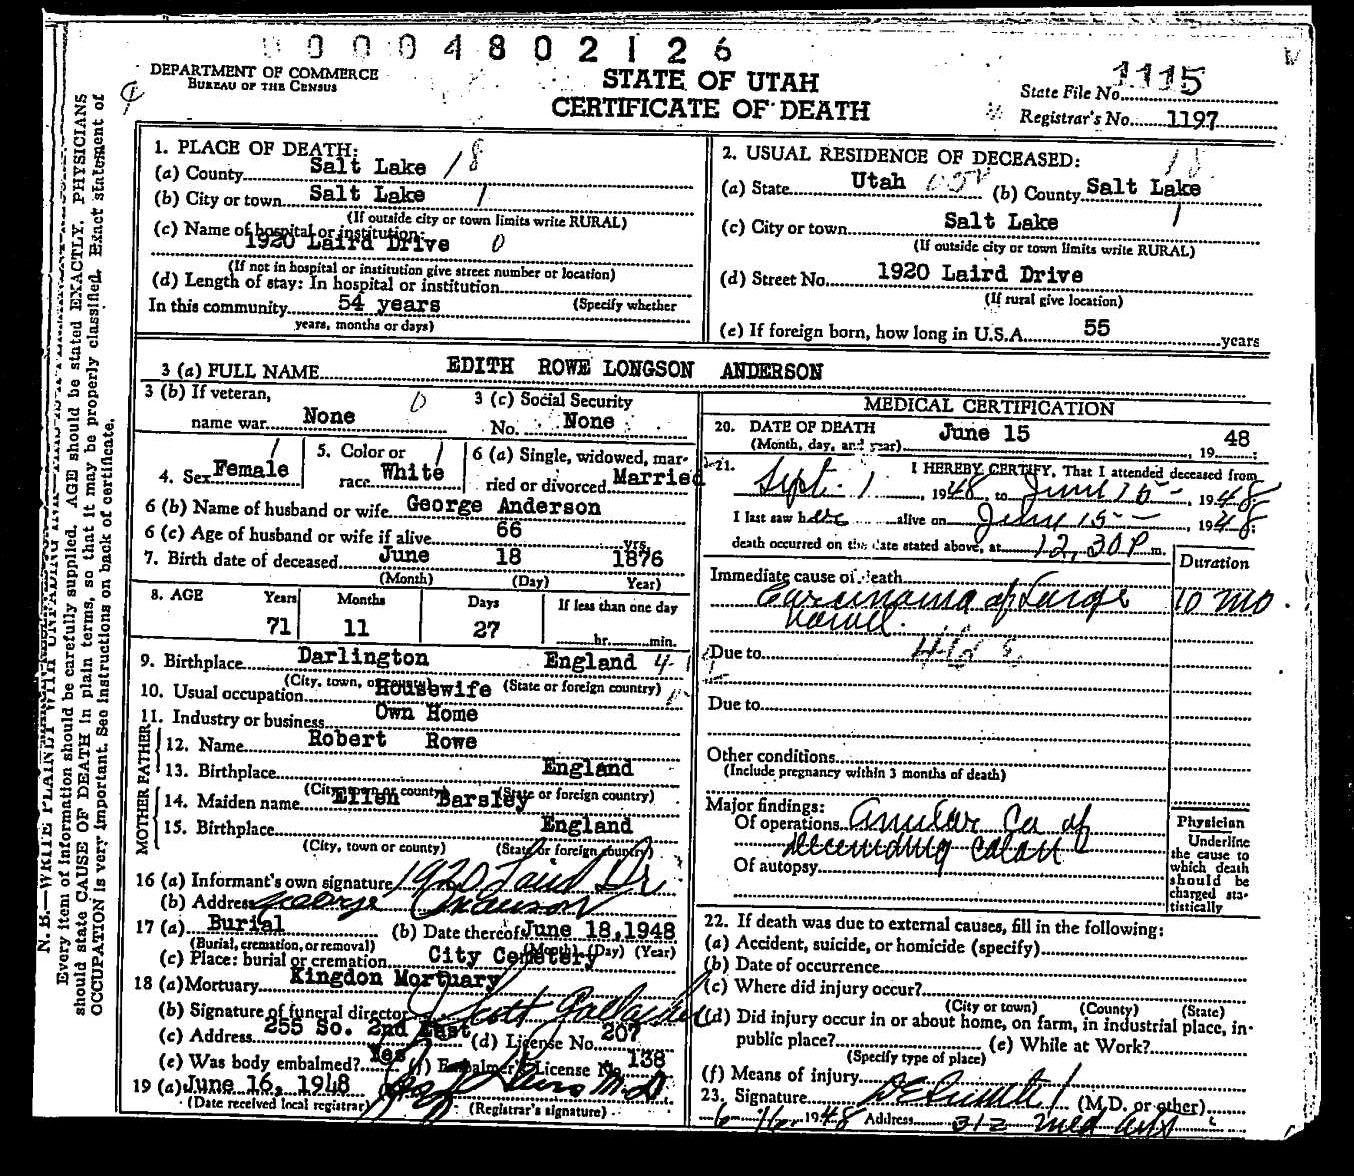 00004802126
DEPARTMENT OF COMMERCE
BUREAU OF THE CENSUS
STATE OF UTAH
CERTIFICATE OF DEATH
State File No. 1115
Registrar's No. 1197
N. B.—WRITE PLAINLY WITH UNFADING
Every item of information should be carefully supplied. AGE should be stated EXACTLY. PHYSICIANS
should state CAUSE OF DEATH in plain terms, so that it may be properly classified. Exact statement of
OCCUPATION is very important. See instructions on back of certificate.
1. PLACE OF DEATH:
(a) County Salt Lake 18
(b) City or town Salt Lake 1
(If outside city or town limits write RURAL)
(c) Name of hospital or institution:
1920 Laird Drive 0
(If not in hospital or institution give street number or location)
(d) Length of stay: In hospital or institution
In this community 54 years (Specify whether
years, months or days)
2. USUAL RESIDENCE OF DECEASED:
(a) State Utah (b) County Salt Lake
(c) City or town Salt Lake 1
(If outside city or town limits write RURAL)
(d) Street No. 1920 Laird Drive
(If rural give location)
(e) If foreign born, how long in U.S.A. 55 years
3 (a) FULL NAME EDITH ROWE LONGSON ANDERSON
3 (b) If veteran,
name war None 0
3 (c) Social Security
No. None
4. Sex Female 1
5. Color or
race White 1
6 (a) Single, widowed, mar-
ried or divorced Married
6 (b) Name of husband or wife George Anderson
6 (c) Age of husband or wife if alive 66 yrs.
7. Birth date of deceased June 18 1876
(Month) (Day) Year)
8. AGE Years Months Days If less than one day
71 11 27 hr. min.
9. Birthplace Darlington England
(City, town, or county) (State or foreign country)
10. Usual occupation Housewife
11. Industry or business Own Home
FATHER
12. Name Robert Rowe
13. Birthplace England
(City, town or county) (State or foreign country)
MOTHER
14. Maiden name Ellen Barsley
15. Birthplace England
(City, town or county) (State or foreign country)
16 (a) Informant's own signature 1920 Laird Dr
(b) Address George Anderson
17 (a) Burial (b) Date thereof June 18, 1948
(Burial, cremation, or removal) (Month) (Day) (Year)
(c) Place: burial or cremation City Cemetery
18 (a) Mortuary Kingdon Mortuary
(b) Signature of funeral director Scott
(c) Address 255 So. 2nd East (d) License No. 207
(e) Was body embalmed? Yes (f) Embalmer's License No. 138
19 (a) June 16, 1948
(Date received local registrar) (Registrar's signature)
MEDICAL CERTIFICATION
20. DATE OF DEATH
(Month, day, and year) June 15, 1948
21. I HEREBY CERTIFY, That I attended deceased from
Sept. 1, 1948, to June 15, 1948
I last saw her alive on June 15, 1948;
death occurred on the date stated above, at 12,30 P m.
Duration
Immediate cause of death
Carcinoma of Large 10 mo.
bowel.
Due to
Due to
Other conditions
(Include pregnancy within 3 months of death)
Major findings:
Of operations Anular Ca of
decending colon
Of autopsy
Physician
Underline
the cause to
which death
should be
charged sta-
tistically
22. If death was due to external causes, fill in the following:
(a) Accident, suicide, or homicide (specify)
(b) Date of occurrence
(c) Where did injury occur?
(City or town) (County) (State)
(d) Did injury occur in or about home, on farm, in industrial place, in-
public place? (e) While at Work?
(Specify type of place)
(f) Means of injury
23. Signature (M.D. or other)
6-16-1948 Address 312 Med Arts